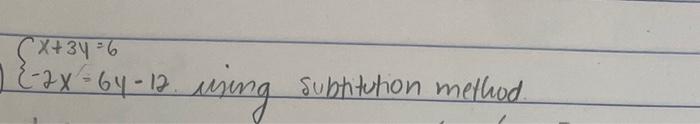 {x+3y=6
{-2x=6y-12. using subtitution method.